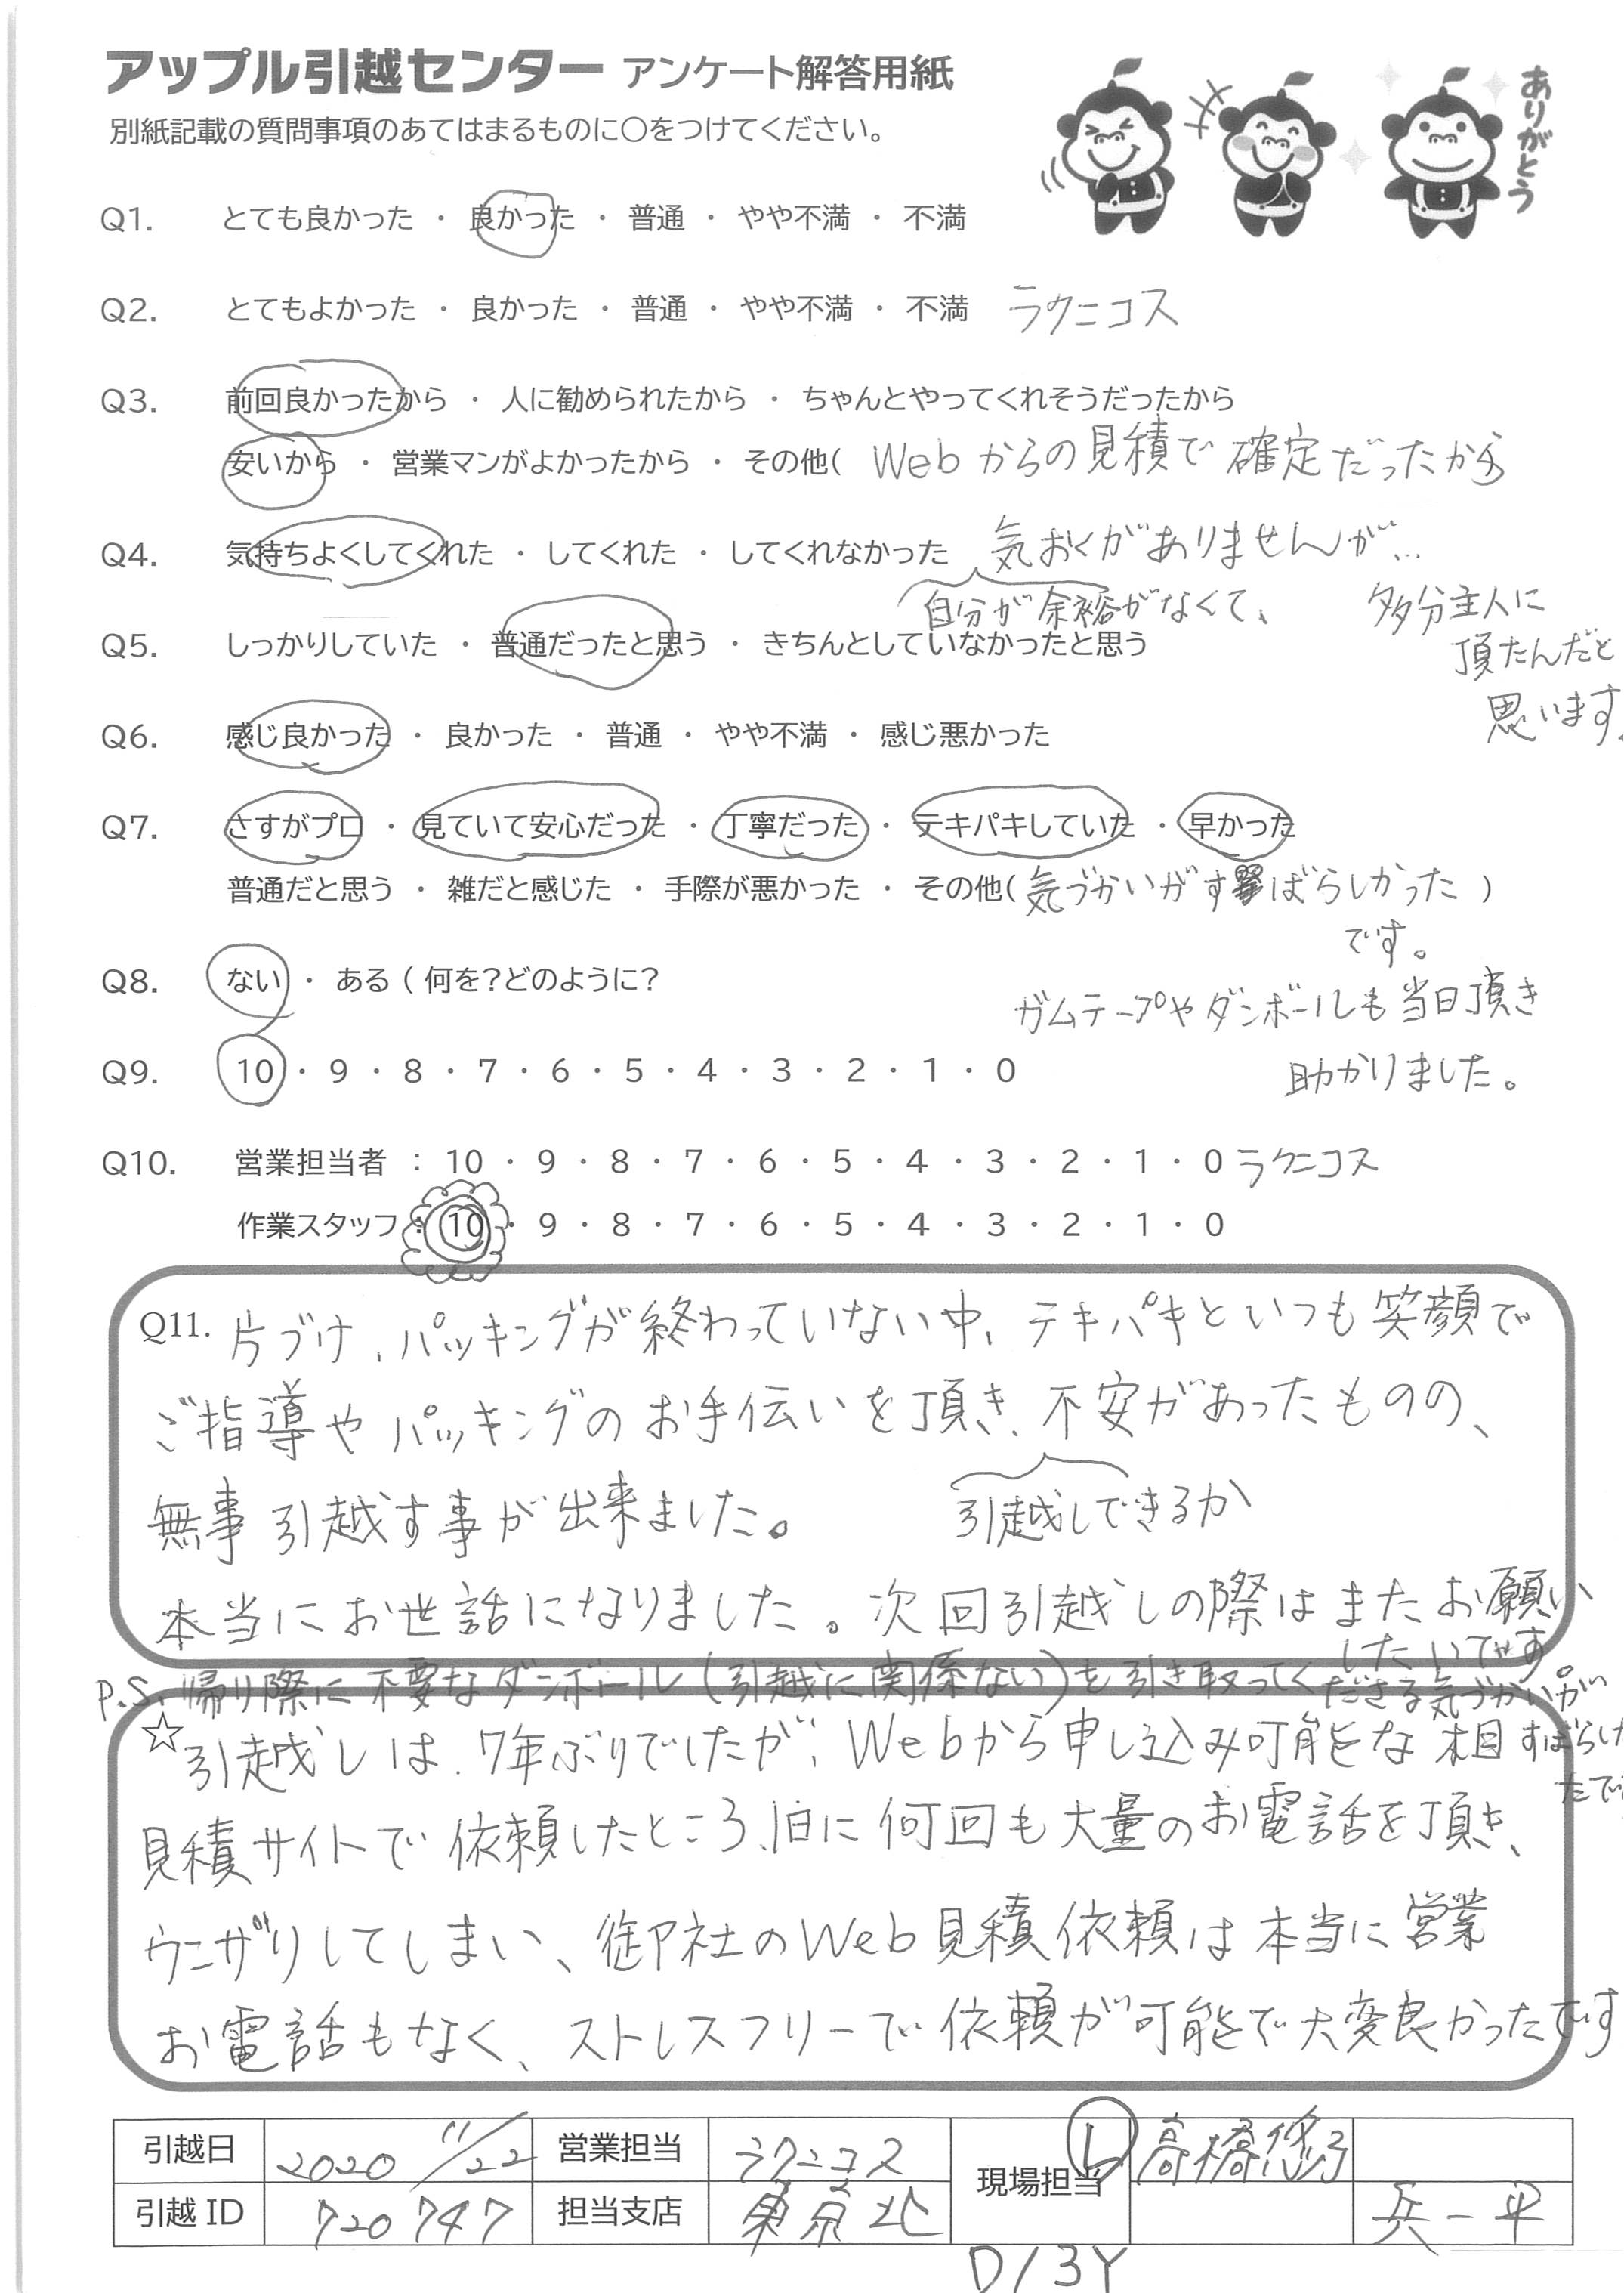 アップル引越センター アンケート解答用紙
別紙記載の質問事項のあてはまるものに○をつけてください。
ありがとう
Q1. とても良かった ・ 良かった ・ 普通 ・ やや不満 ・ 不満
Q2. とてもよかった ・ 良かった ・ 普通 ・ やや不満 ・ 不満 ラクニコス
Q3. 前回良かったから ・ 人に勧められたから ・ ちゃんとやってくれそうだったから
安いから ・ 営業マンがよかったから ・ その他( Webからの見積で確定だったから
Q4. 気持ちよくしてくれた ・ してくれた ・ してくれなかった 気おくがありませんが…
自分が余裕がなくて、 多分主人に
Q5. しっかりしていた ・ 普通だったと思う ・ きちんとしていなかったと思う
頂たんだと
思います。
Q6. 感じ良かった ・ 良かった ・ 普通 ・ やや不満 ・ 感じ悪かった
Q7. さすがプロ ・ 見ていて安心だった ・ 丁寧だった ・ テキパキしていた ・ 早かった
普通だと思う ・ 雑だと感じた ・ 手際が悪かった ・ その他( 気づかいがすばらしかった )
です。
Q8. ない ・ ある ( 何を?どのように?
ガムテープやダンボールも当日頂き
Q9. 10 ・ 9 ・ 8 ・ 7 ・ 6 ・ 5 ・ 4 ・ 3 ・ 2 ・ 1 ・ 0 助かりました。
Q10. 営業担当者 : 10 ・ 9 ・ 8 ・ 7 ・ 6 ・ 5 ・ 4 ・ 3 ・ 2 ・ 1 ・ 0 ラクニコス
作業スタッフ : 10 ・ 9 ・ 8 ・ 7 ・ 6 ・ 5 ・ 4 ・ 3 ・ 2 ・ 1 ・ 0
Q11. 片づけ、パッキングが終わっていない中、テキパキといつも笑顔で
ご指導やパッキングのお手伝いを頂き、不安があったものの、
無事引越す事が出来ました。 引越しできるか
本当にお世話になりました。次回引越しの際はまたお願い
したいです。
P.S. 帰り際に不要なダンボール(引越に関係ない)を引き取ってくださる気づかいが
すばらし
たで
☆引越しは、7年ぶりでしたが、Webから申し込み可能な相
見積サイトで依頼したところ、1日に何回も大量のお電話を頂き、
ウンザリしてしまい、御社のWeb見積依頼は本当に営業
お電話もなく、ストレスフリーで依頼が可能で大変良かったです
引越日 2020 11/22 営業担当 ラクニコス 現場担当 L 高橋悠
引越ID 720747 担当支店 東京北 兵一平
D/3Y